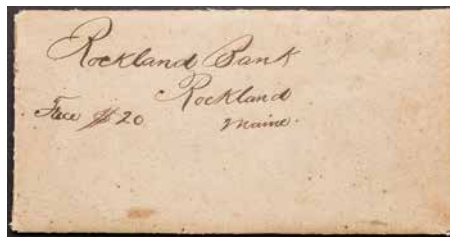 Rockland Bank
Rockland
Face $20 Maine.